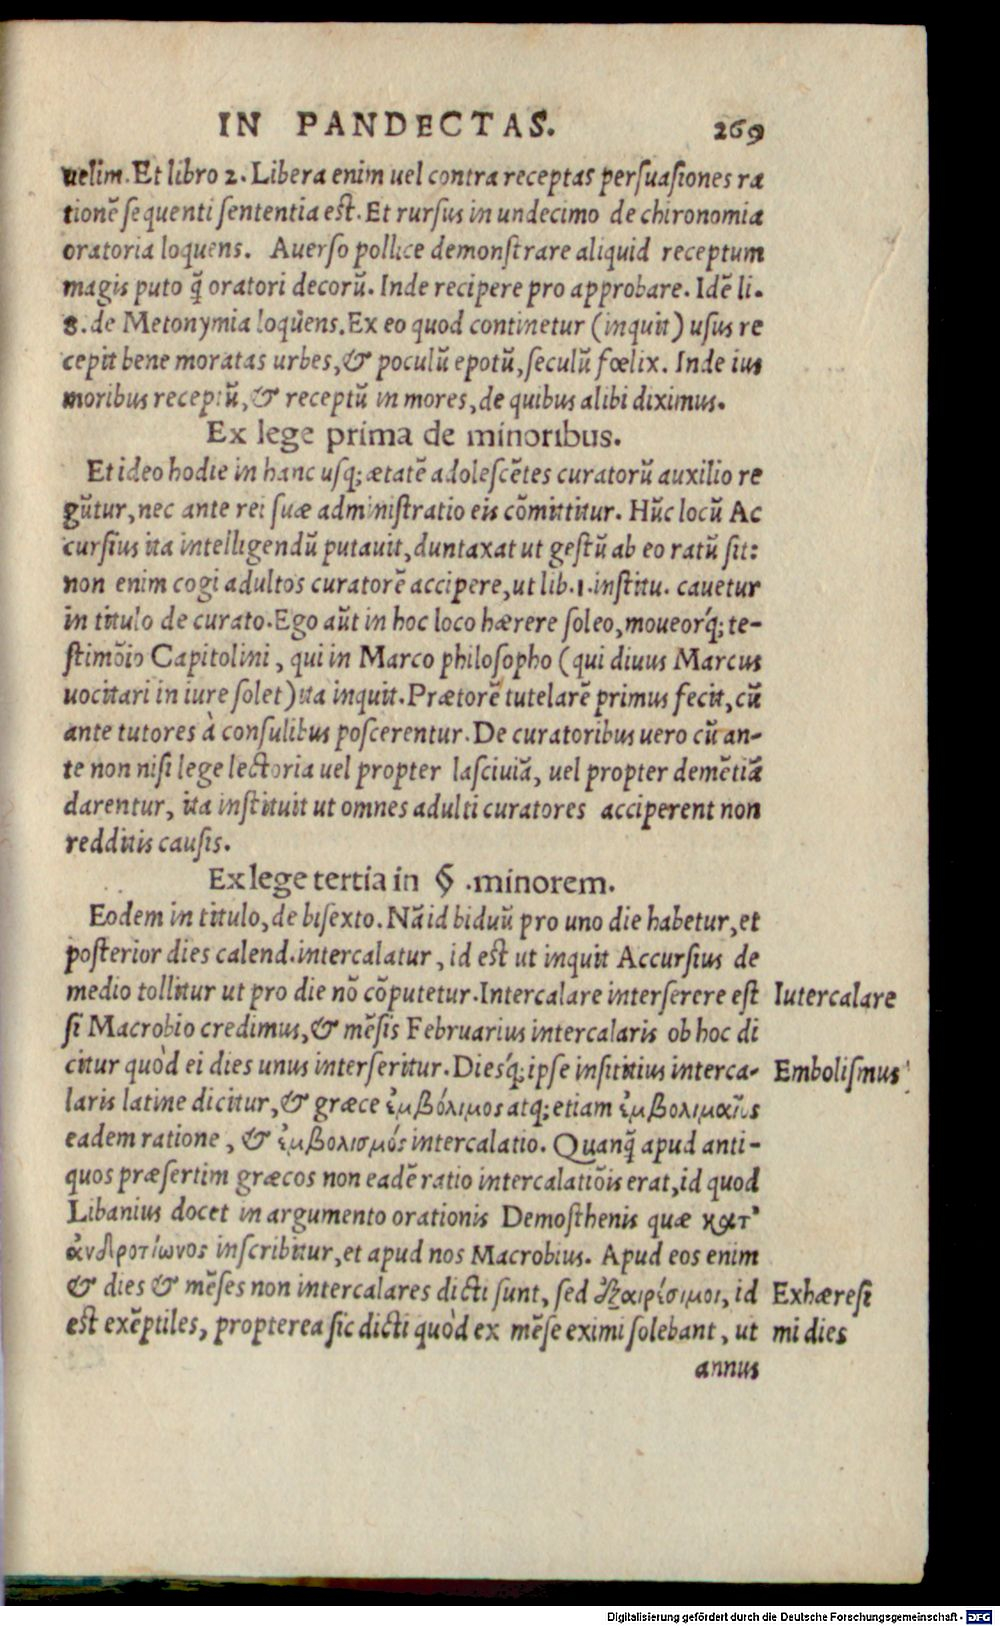 IN PANDECTAS. 269
uelim. Et libro 2. Libera enim uel contra receptas persuasiones ra
tionē sequenti sententia est. Et rursus in undecimo de chironomia
oratoria loquens. Auerso pollice demonstrare aliquid receptum
magis puto q̃ oratori decorū. Inde recipere pro approbare. Idē li.
8. de Metonymia loquens. Ex eo quod continetur (inquit) usus re
cepit bene moratas urbes, & poculū epotū, seculū fœlix. Inde ius
moribus receptū, & receptū in mores, de quibus alibi diximus.
Ex lege prima de minoribus.
Et ideo hodie in hanc usq; ætatē adolescētes curatorū auxilio re
gūtur, nec ante rei suæ administratio eis cōmittitur. Hūc locū Ac
cursius ita intelligendū putauit, duntaxat ut gestū ab eo ratū sit:
non enim cogi adultos curatorē accipere, ut lib. 1. institu. cauetur
in titulo de curato. Ego aūt in hoc loco hærere soleo, moueorq́; te-
stimōio Capitolini, qui in Marco philosopho (qui diuus Marcus
uocitari in iure solet) ita inquit. Prætorē tutelarē primus fecit, cū
ante tutores à consulibus poscerentur. De curatoribus uero cū an-
te non nisi lege lectoria uel propter lasciuiā, uel propter demētiā
darentur, ita instituit ut omnes adulti curatores acciperent non
redditis causis.
Ex lege tertia in §. minorem.
Eodem in titulo, de bisexto. Nā id biduū pro uno die habetur, et
posterior dies calend. intercalatur, id est ut inquit Accursius de
medio tollitur ut pro die nō cōputetur. Intercalare interserere est Iutercalare
si Macrobio credimus, & mēsis Februarius intercalaris ob hoc di
citur quòd ei dies unus interseritur. Diesq́; ipse insititius interca- Embolismus
laris latine dicitur, & græce ἐμβόλιμος atq; etiam ἐμβολιμαῖος
eadem ratione, & ἐμβολισμός intercalatio. Quanq̃ apud anti-
quos præsertim græcos non eadē ratio intercalatiōis erat, id quod
Libanius docet in argumento orationis Demosthenis quæ κατ᾽
ἀνδροτίωνος inscribitur, et apud nos Macrobius. Apud eos enim
& dies & mēses non intercalares dicti sunt, sed ἐξαιρέσιμοι, id Exhæresi
est exēptiles, propterea sic dicti quòd ex mēse eximi solebant, ut mi dies
annus
Digitalisierung gefördert durch die Deutsche Forschungsgemeinschaft - DFG